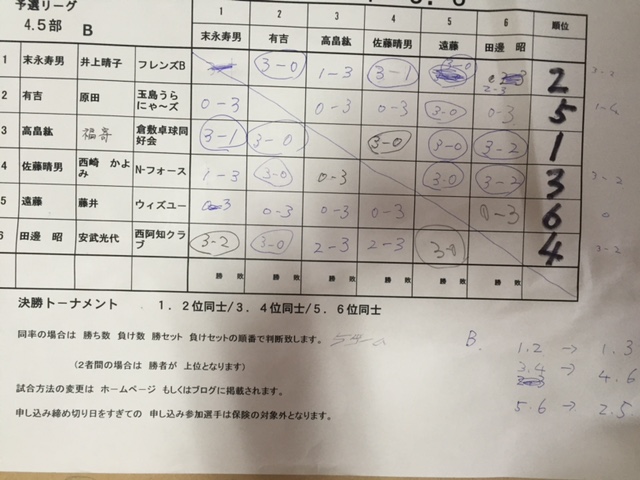 予選リーグ
4.5部 B
1 2 3 4 5 6 順位
末永寿男 有吉 高畠紘 佐藤晴男 遠藤 田邊 昭
1 末永寿男 井上晴子 フレンズB 3-0 1-3 3-1 3-0 2-3 2 3-2
2 有吉 原田 玉島うらにゃ～ズ 0-3 0-3 0-3 3-0 0-3 5 1-4
3 高畠紘 福寄 倉敷卓球同好会 3-1 3-0 3-0 3-0 3-2 1
4 佐藤晴男 西崎 かよみ N-フォース 1-3 3-0 0-3 3-0 3-2 3 3-2
5 遠藤 藤井 ウィズユー 0-3 0-3 0-3 0-3 0-3 6 0
6 田邊 昭 安武光代 西阿知クラブ 3-2 3-0 2-3 2-3 3-0 4 3-2
勝 敗 勝 敗 勝 敗 勝 敗 勝 敗 勝 敗
決勝トーナメント 1.2位同士/3.4位同士/5.6位同士
同率の場合は 勝ち数 負け数 勝セット 負けセットの順番で判断致します。
(2者間の場合は 勝者が 上位となります)
試合方法の変更は ホームページ もしくはブログに掲載されます。
申し込み締め切り日をすぎての 申し込み参加選手は保険の対象外となります。
B. 1.2 → 1.3
3.4 → 4.6
5.6 → 2.5